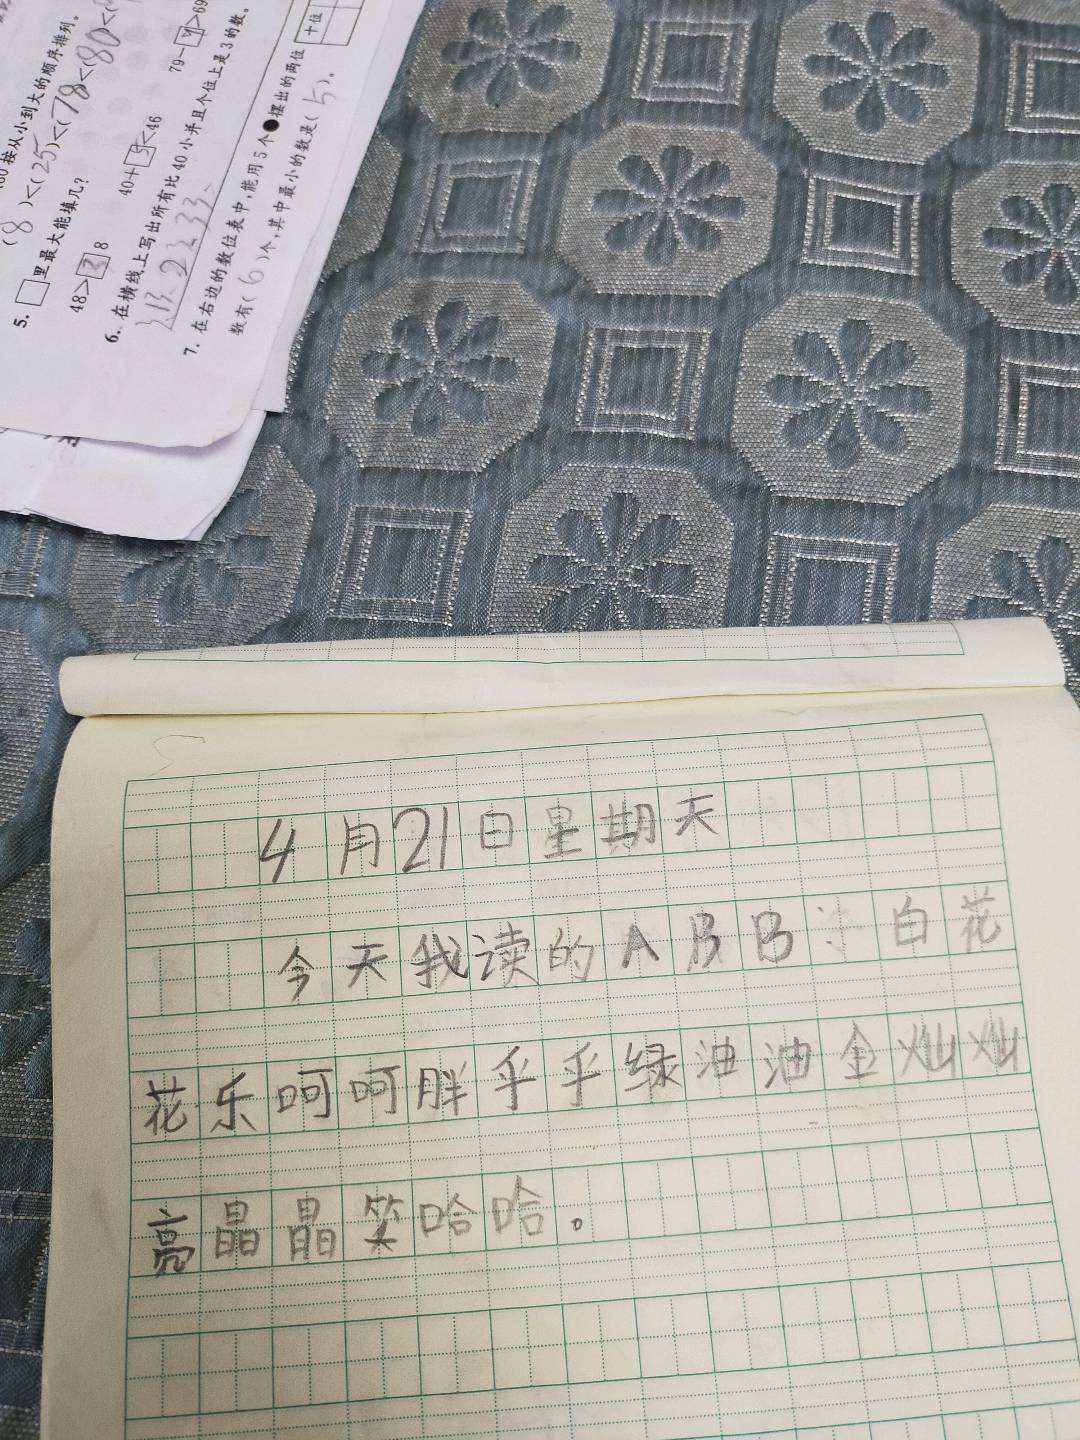 100按从小到大的顺序排列。
(8)<(25)<(78<(80<(
5. □里最大能填几?
48>3 8 40+5<46 79-9>69
6. 在横线上写出所有比40小并且个位上是3的数。
13 23 33
7. 在右边的数位表中,能用5个●摆出的两位
数有(6)个,其中最小的数是(15)。
十位
4月21日星期天
今天我读的ABB:白花
花乐呵呵胖乎乎绿油油金灿灿
亮晶晶笑哈哈。